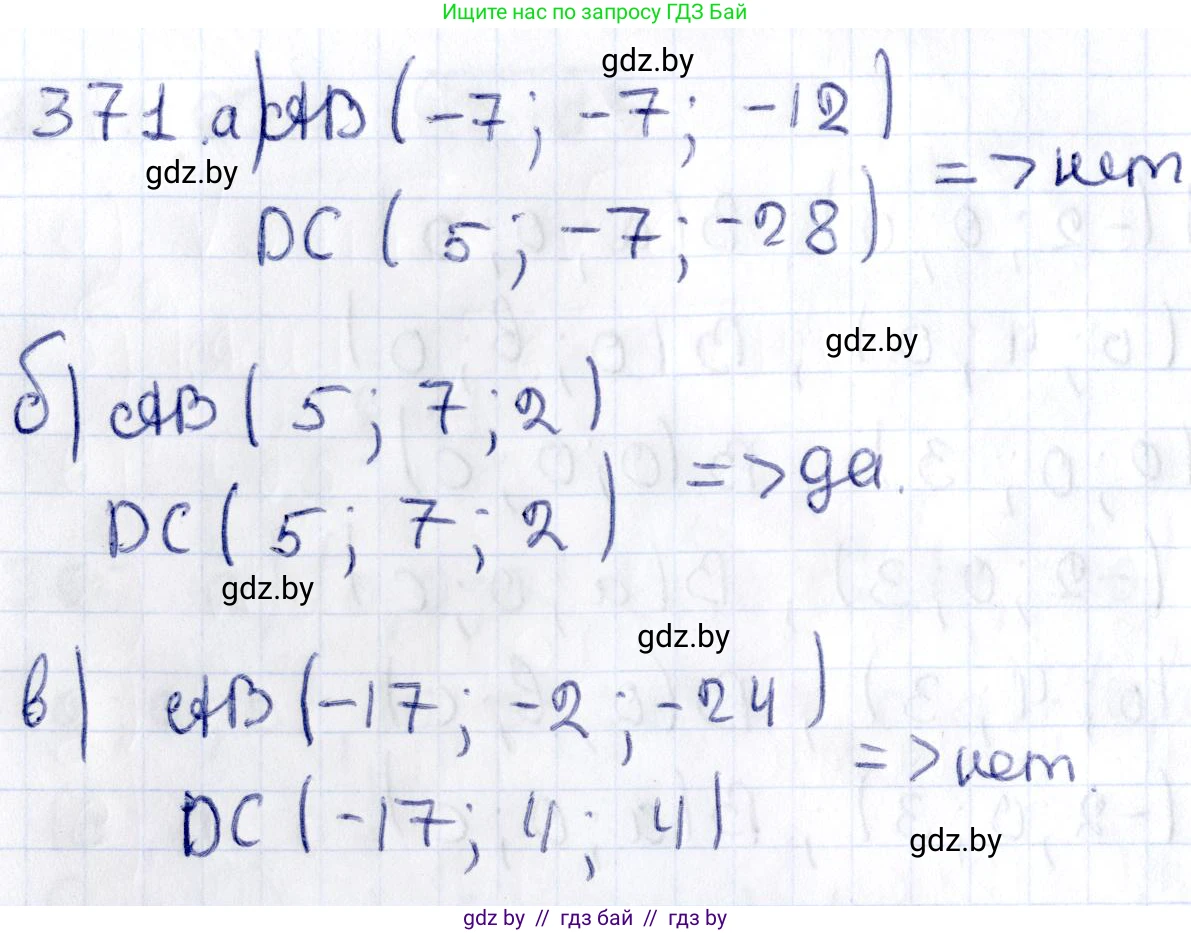 Ищите нас по запросу ГДЗ Бай
gdz.by
371.а) AB (-7; -7; -12)
gdz.by
=> нет
DC (5; -7; -28)
gdz.by
б) AB (5; 7; 2)
=> да.
DC (5; 7; 2)
gdz.by
gdz.by
в) AB (-17; -2; -24)
=> нет.
DC (-17; 4; 4)
gdz.by
gdz by // гдз бай // гдз by